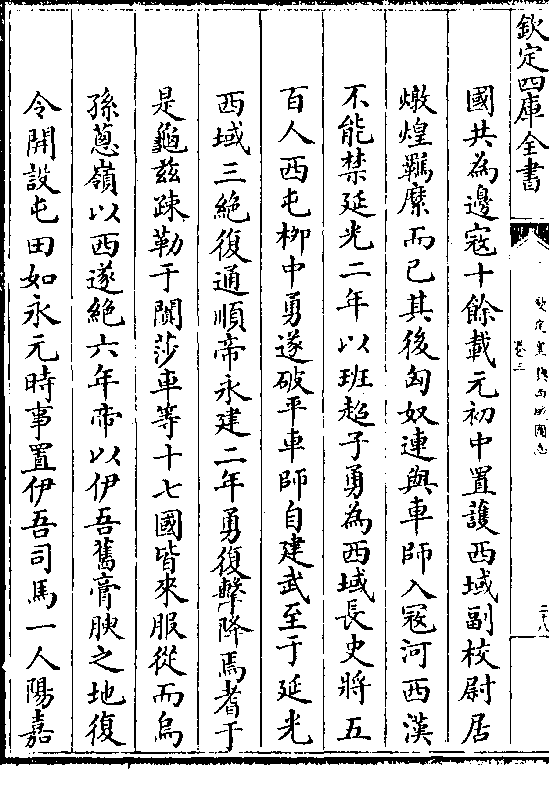 欽定四庫全書
欽定皇輿西域圖志
卷三
二十八
國共為邊寇十餘載元初中置護西域副校尉居
燉煌羈縻而已其後匈奴連與車師入寇河西漢
不能禁延光二年以班超子勇為西域長史將五
百人西屯柳中勇遂破平車師自建武至于延光
西域三絶復通順帝永建二年勇復擊降焉耆于
是龜兹疎勒于闐莎車等十七國皆來服從而烏
孫蔥嶺以西遂絶六年帝以伊吾舊膏腴之地復
令開設屯田如永元時事置伊吾司馬一人陽嘉